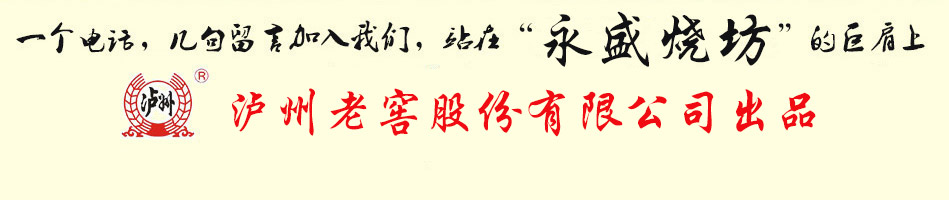 一个电话，几句留言加入我们，站在“永盛烧坊”的巨肩上
泸州 ®
泸州老窖股份有限公司出品